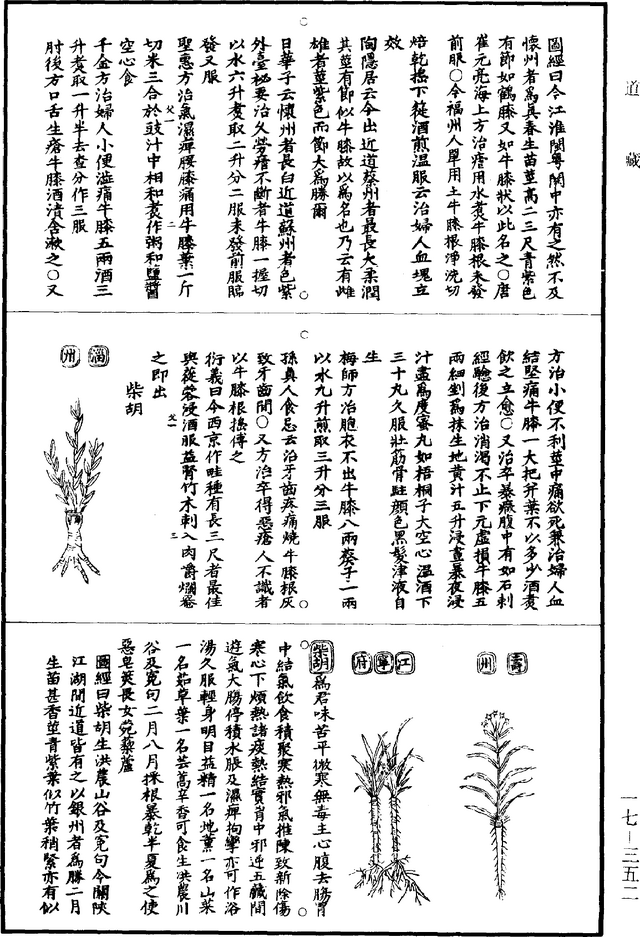 道藏
圖經曰今江淮閩粤関中亦有之然不及
懷州者為真春生苗莖高二三尺青紫色
有節如鶴膝又如牛膝狀以此名之○唐
崔元亮海上方治瘧用水煑牛膝根未發
前服○今福州人單用土牛膝根淨洗切
焙乾擣下篵酒煎温服云治婦人血塊立
效
陶隱居云今出近道蔡州者最長大柔潤
其莖有節似牛膝故以為名也乃云有雌
雄者莖紫色而節大為勝爾
日華子云懷州者長白近道蘇州者色紫
外臺秘要治久勞瘧不斷者牛膝一握切
以水六升煑取二升分二服未發前服臨
發又服
聖惠方治氣濕痺腰膝痛用牛膝葉一斤
切米三合於豉汁中相和煑作粥和鹽醬
空心食
千金方治婦人小便澁痛牛膝五兩酒三
升煑取一升半去查分作三服
肘後方口舌生瘡牛膝酒漬含漱之○又
方治小便不利莖中痛欲死兼治婦人血
結堅痛牛膝一大把并葉不以多少酒煑
飲之立愈○又治卒暴癥腹中有如石刺
經驗後方治消渴不止下元虛損牛膝五
兩細剉為抹生地黄汁五升浸晝暴夜浸
汁盡為度蜜丸如梧桐子大空心温酒下
三十丸久服壯筋骨駐顔色黑髮津液自
生
梅師方治胞衣不出牛膝八兩葵子一兩
以水九升煎取三升分三服
孫真人食忌云治牙齒疼痛燒牛膝根灰
致牙齒間○又方治卒得惡瘡人不識者
以牛膝根擣傅之
衍義曰今西京作畦種有長三尺者最佳
與蓯蓉浸酒服益腎竹木刺入肉爵爛罨
之即出
柴胡
淄州
壽州
江寧府
柴胡為君味苦平微寒無毒主心腹去腸胃
中結氣飲食積聚寒熱邪氣推陳致新除傷
寒心下煩熱諸痰熱結實胷中邪逆五臟間
遊氣大腸停積水脹及濕痺拘攣亦可作浴
湯久服輕身明目益精一名地薰一名山菜
一名茹草葉一名芸蒿辛香可食生洪農川
谷及寃句二月八月採根暴乾半夏為之使
惡皂莢畏女菀藜蘆
圖經曰柴胡生洪農山谷及寃句今關陝
江湖間近道皆有之以銀州者為勝二月
生苗甚香莖青紫葉似竹葉稍緊亦有似
一七-三五二